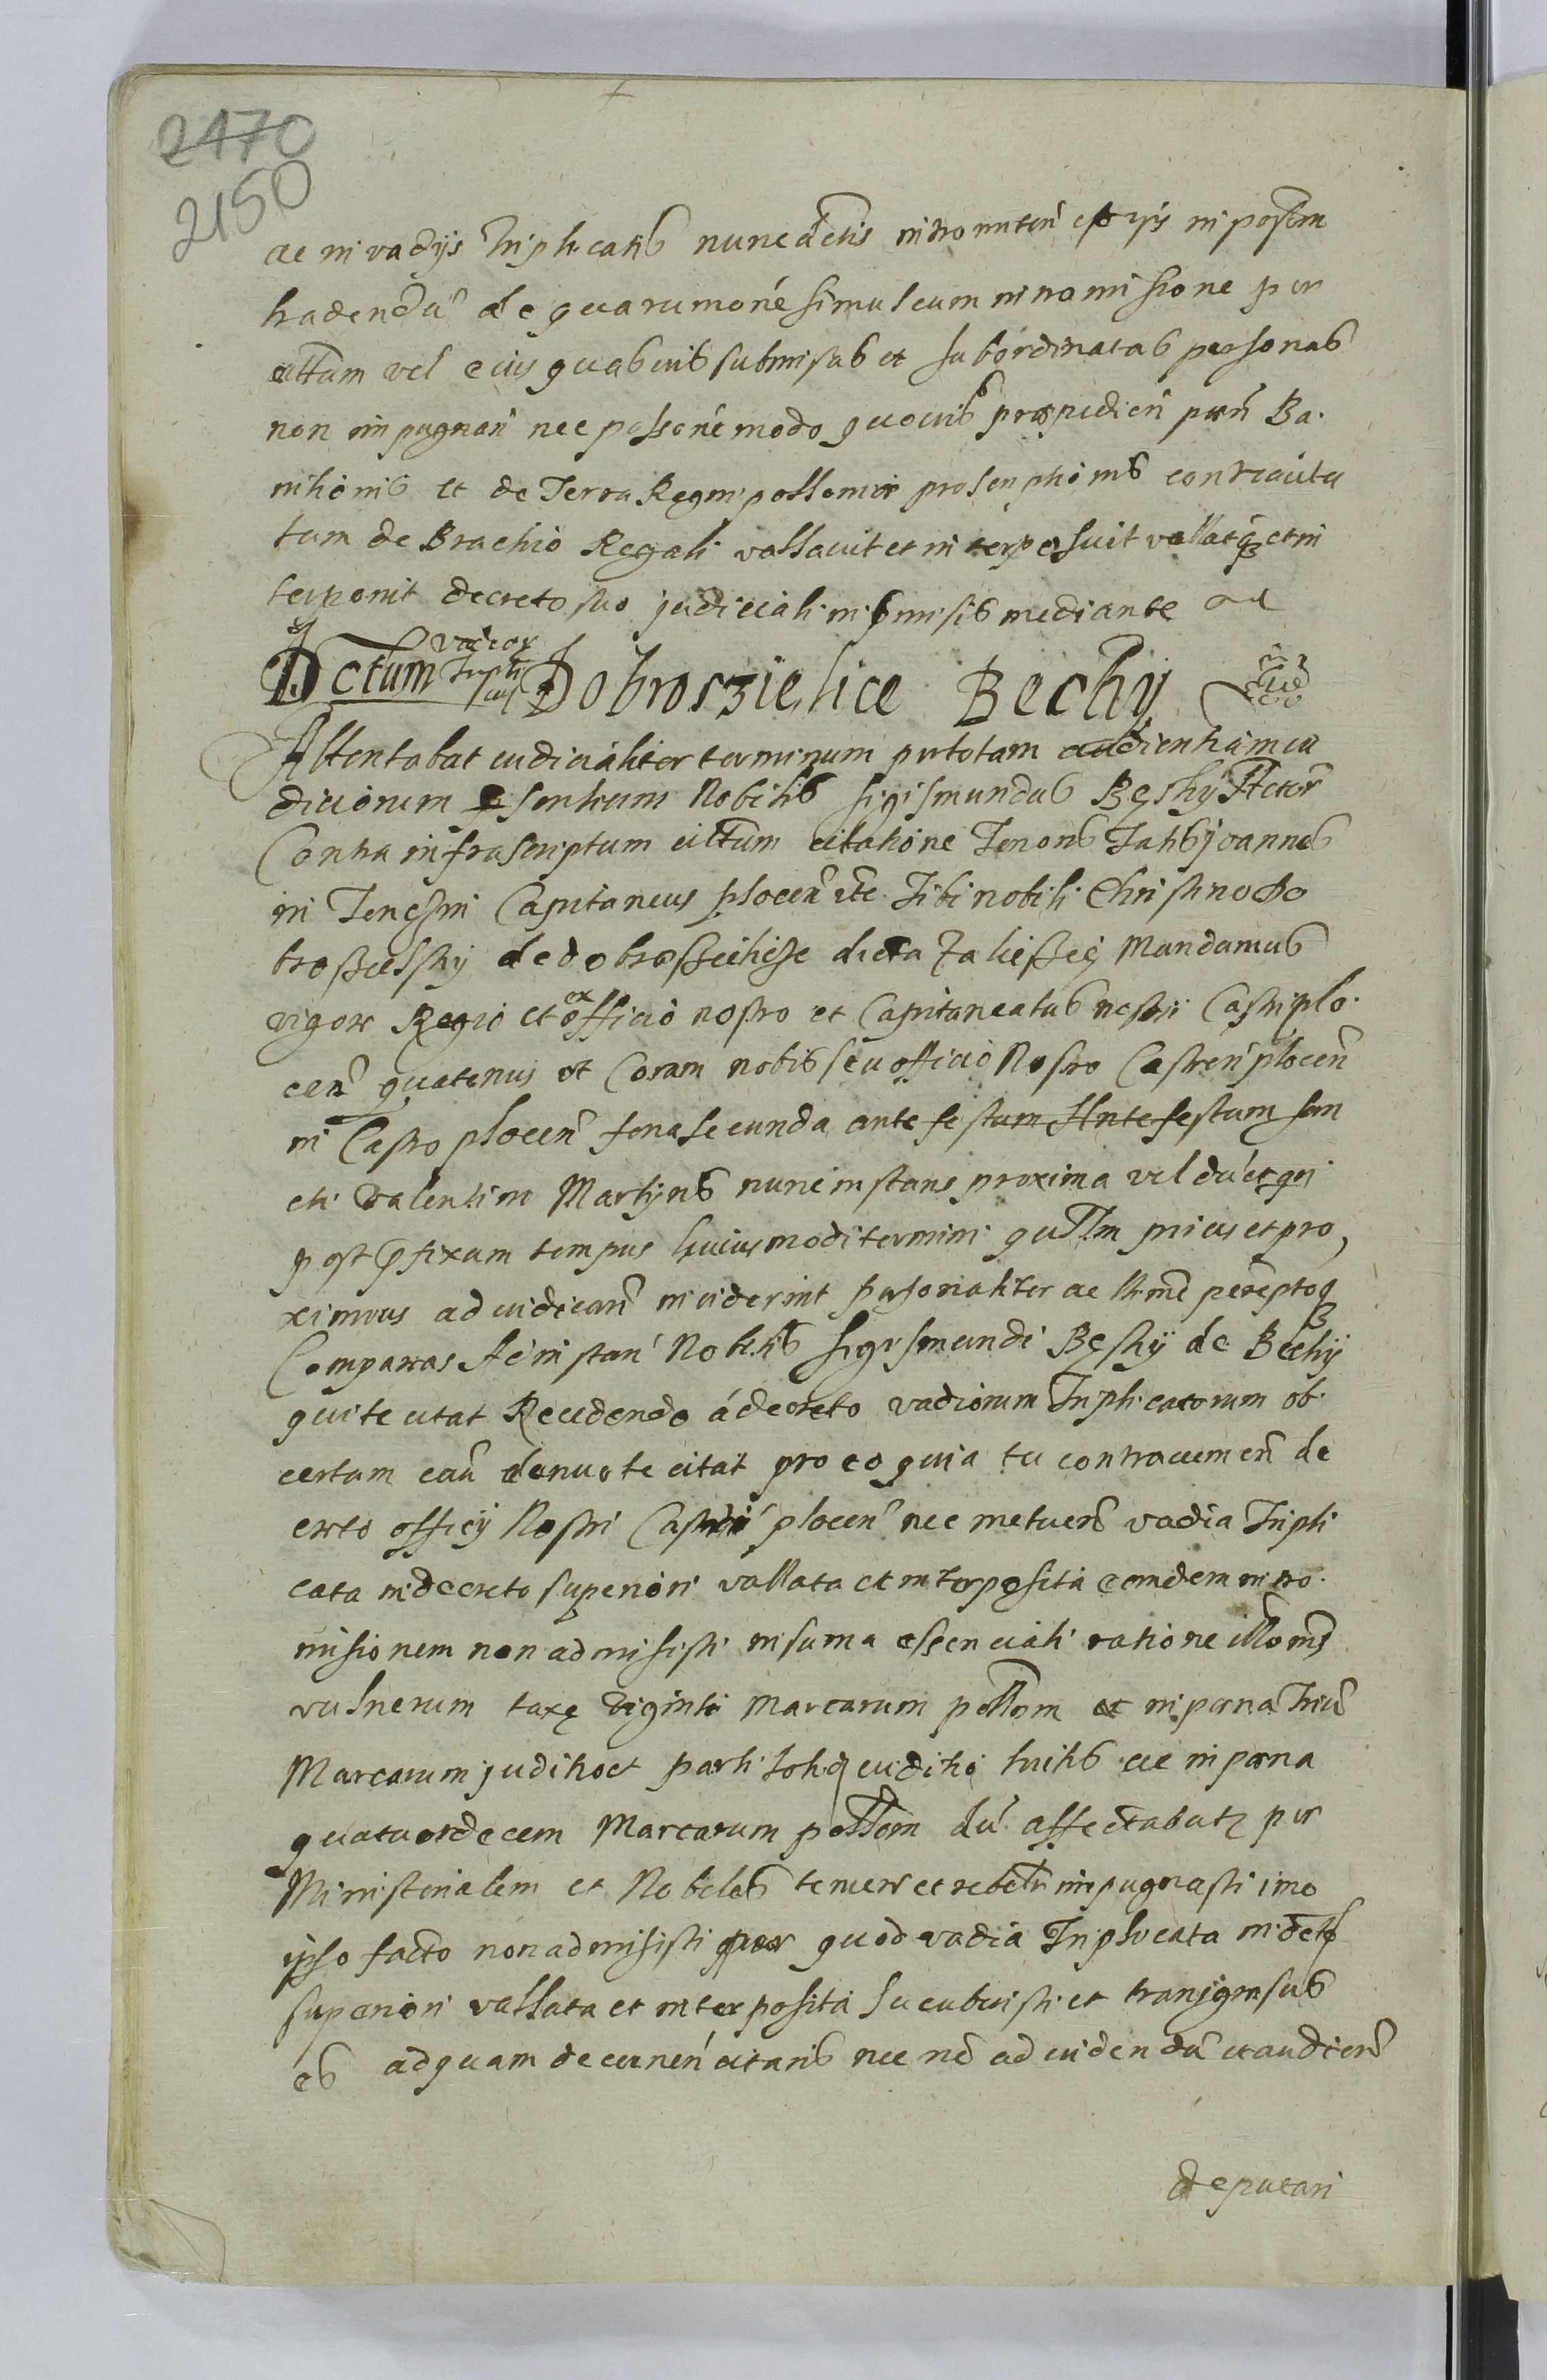 2470
2150
ac in vadys Triplicatis nunc dictis intromitteñ ex ijs in possem
tradendã de quarum oñe simul cum intromissione per
cittum vel eius quasvis submissas et subordinatas personas
non impugnañ nec possoñe modo quovis præpedieñ pœñ Ba
nitionis et de Terra Regni pollonie proscriptionis contra cita
tum de Brachio Regali vallavit et interposuit vallatq et in
terponit decreto suo judiciali in p̃missis mediante
Dctum vador Tripli cat Dobrosziełice Bechy
Attentabat iudicialiter terminum per totam audientiam iu
diciorum p̃sentium Nobilis Sigismundus Bęsky Actor
Contra infrascriptum cittum citatione Tenoris Talis Joannes
in Tenczin Capitaneus ploceñ etc Tibi nobili Christino Do
brosielsky de dobrosseilicze dicta Zalieskę Mandamus
vigore Regio et ex officio nostro et Capitaneatus nostri Castri plo
ceñ quatenus et Coram nobis seu officio Nostro Castreñ ploceñ
in Castro ploceñ feria secunda ante festum Ante festum san
cti Valentini Martyris nunc instans proxima vel dũ et qñ
post p̃fixum tempus huiusmodi termini quTlm prius et pro,
ximius ad iudicanð inciderint personaliter ac ltimẽ peremptoq
Compareas Ad instanˊ Nobilis Sigismundi Bęsky de Bechy
qui te citat Recedendo á decreto vadiorum Triplicatorum ob
certam cauˊ denuo te citat pro eo quia tu contravenienð de
creto officy Nostri Castreñ ploceñ nec metuenð vadia Tripli
cata in decreto superiori vallata et interposita eandem intro
missionem non admisisti in suma essenciali ratione illorum
vulnerum taxę viginti Marcarum pollom et in pœna Triũ
Marcarum judicio et parti totidẽ iuditio luitis ac in pœna
quatuordecem Marcarum pollom dũ affectabatz per
Ministerialem et Nobeles temere et rebelr impugnasti imo
ipso facto non admisisti per quod vadia Triplicata in dcto
superiori vallata et interposita sucubuisti et transgressus
es ad quam decerneñ citaris nec nõ ad uidendũ et audienð
deputari